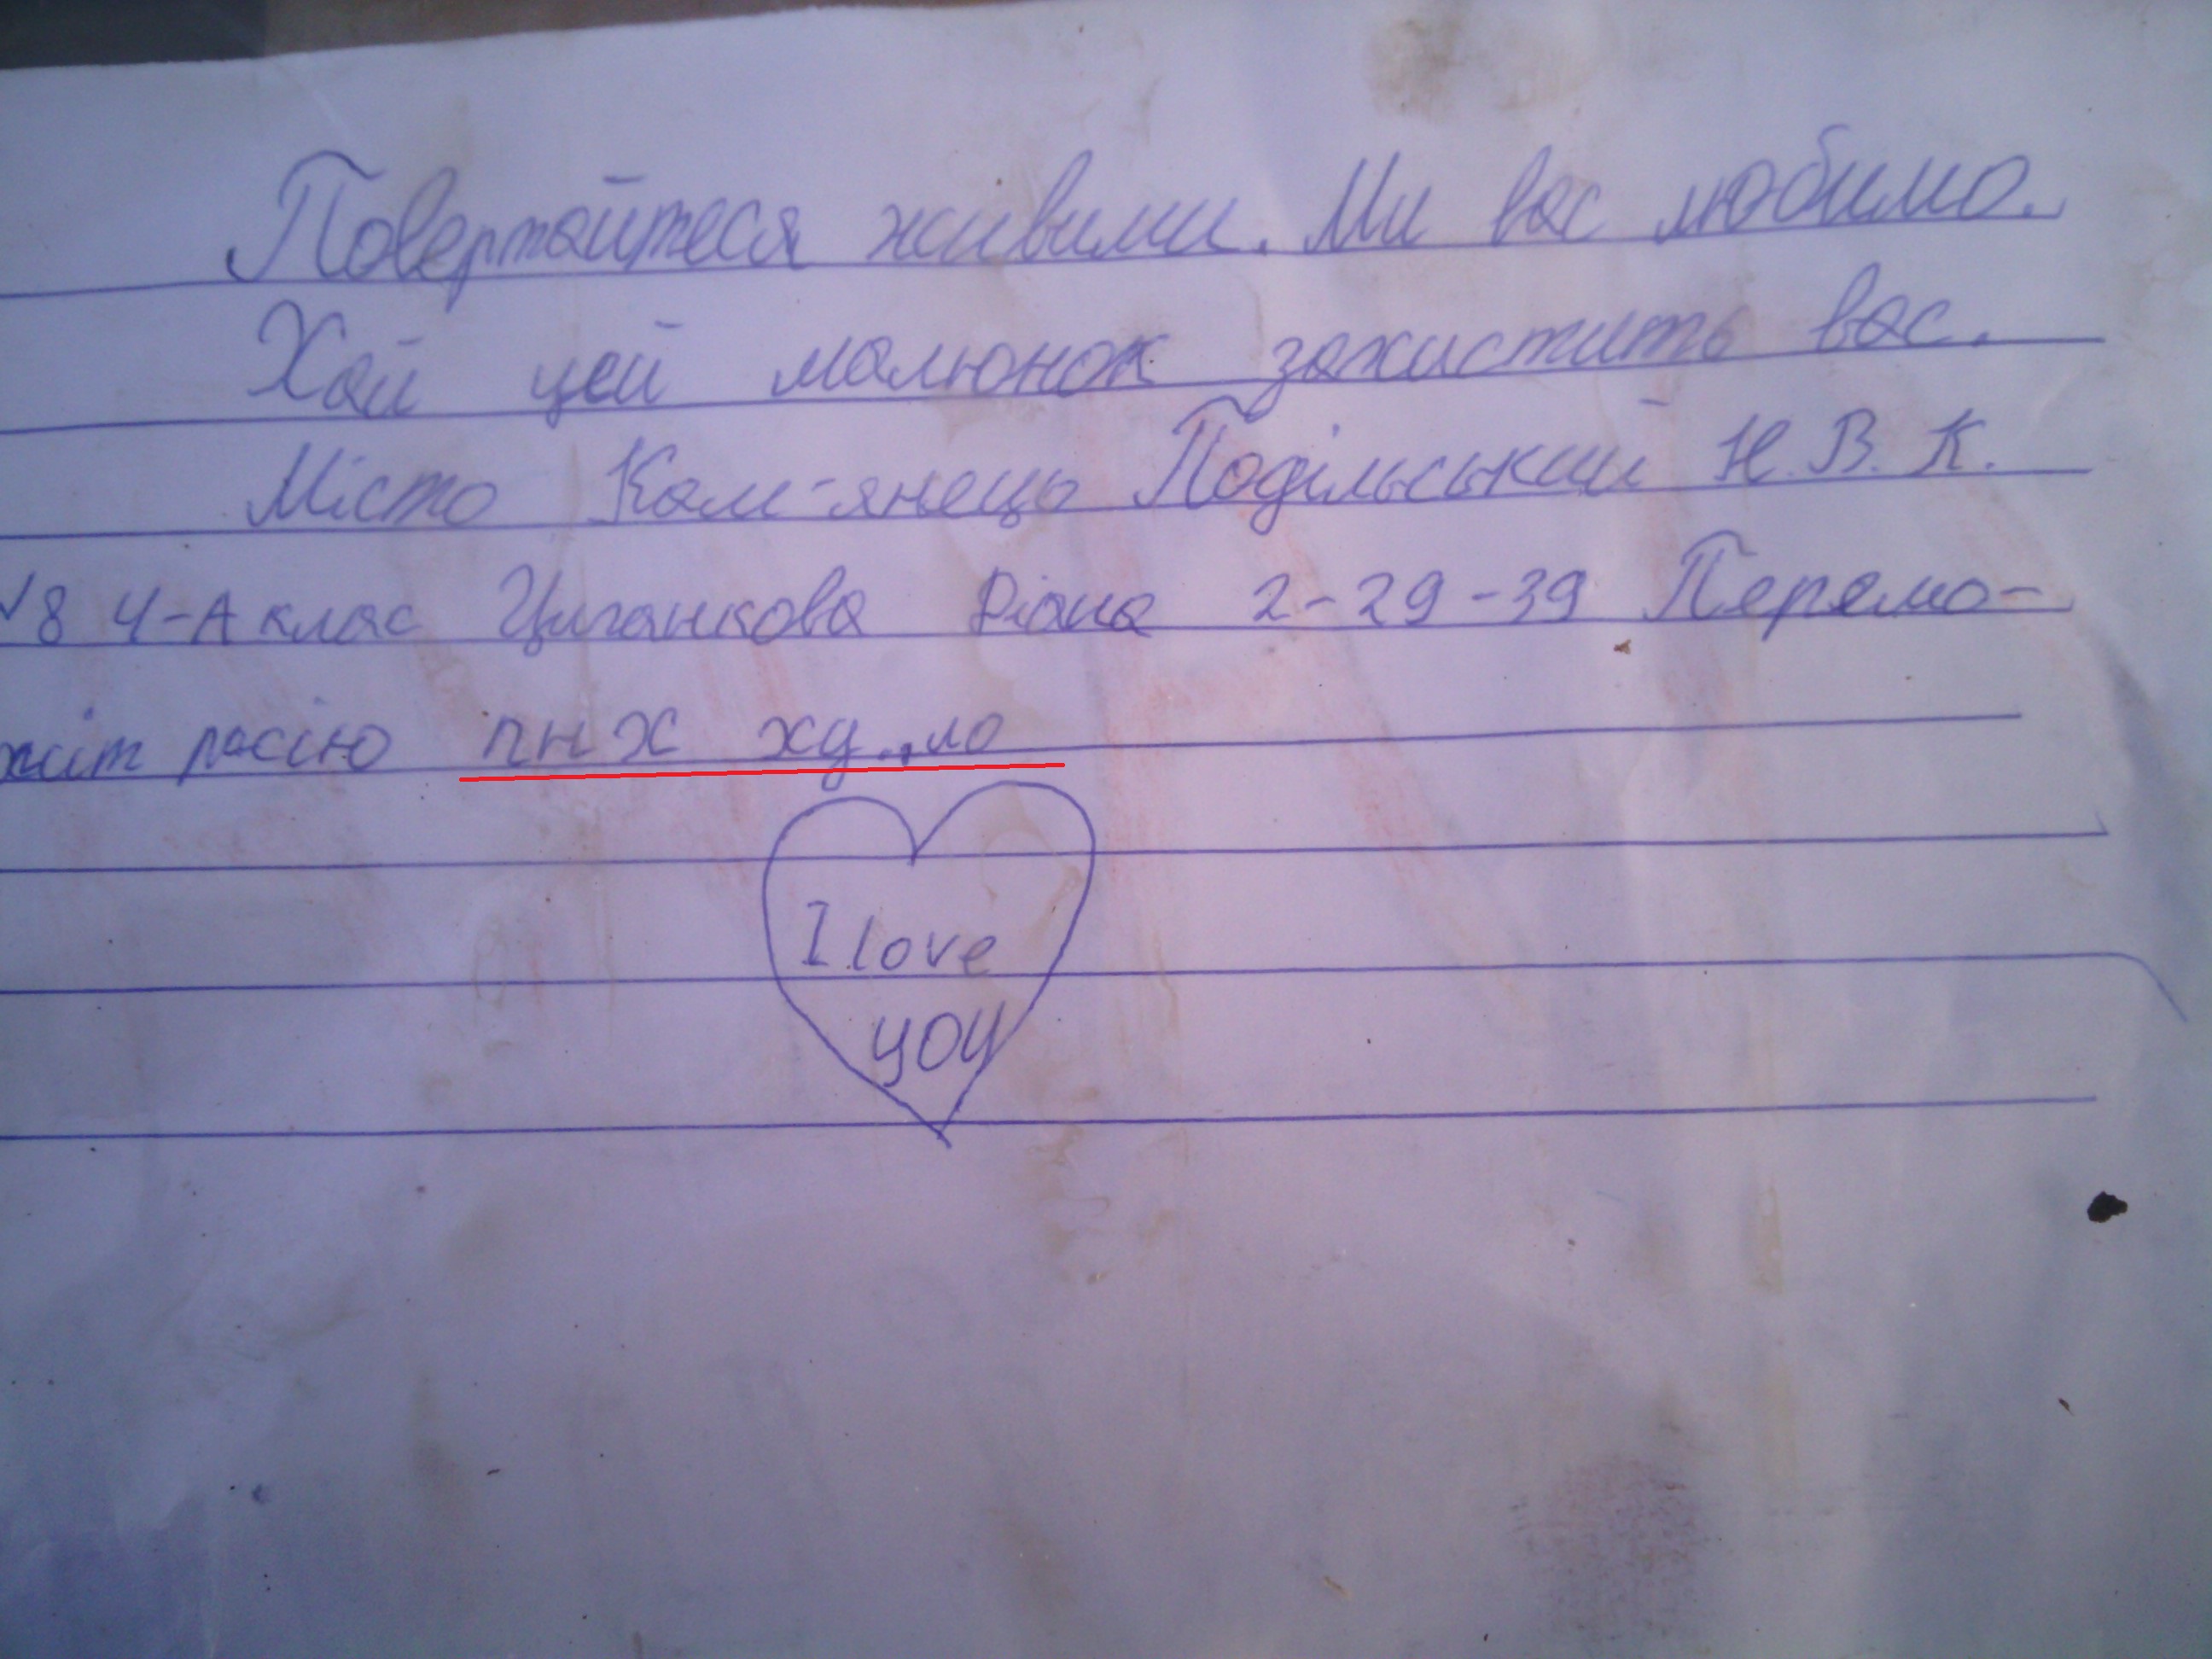 Повертайтеся живими. Ми вас любимо.
Хай цей малюнок захистить вас.
Місто Кам-янець Подільський Н.В.К.
№8 4-А клас Циганкова Діана 2-29-39 Перемо-
жіт расію пнх ху..ло
I love
you